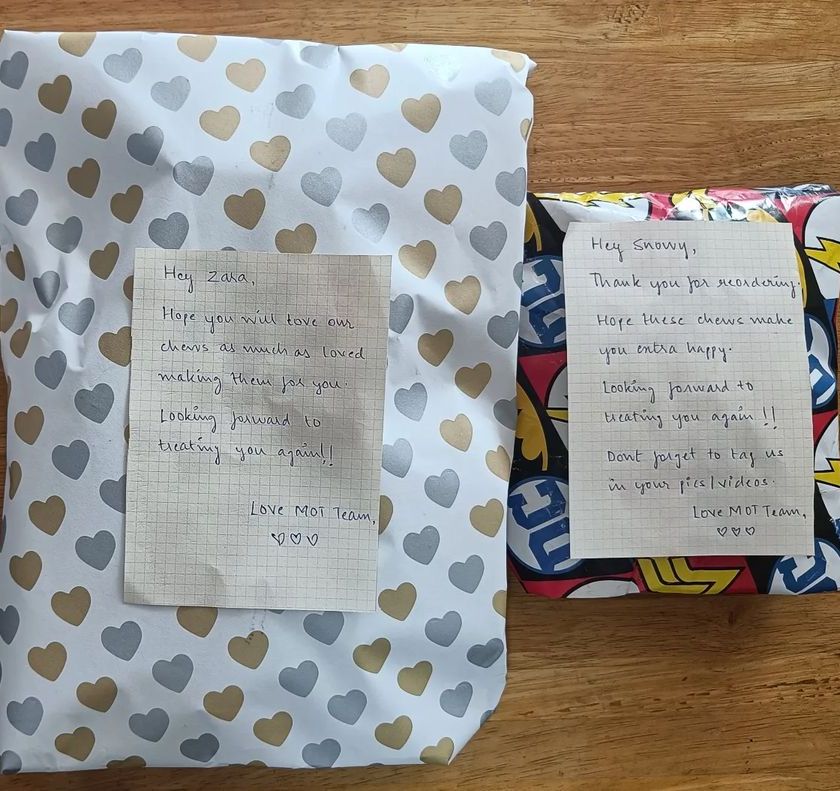 Hey Zara,
Hope you will love our
chews as much as loved
making them for you.
Looking forward to
treating you again!!
Love MOT Team,
Hey Snowy,
Thank you for reordering.
Hope these chews make
you extra happy.
Looking forward to
treating you again !!
Dont forget to tag us
in your pics/videos.
Love MOT Team,
DC
DC
DC